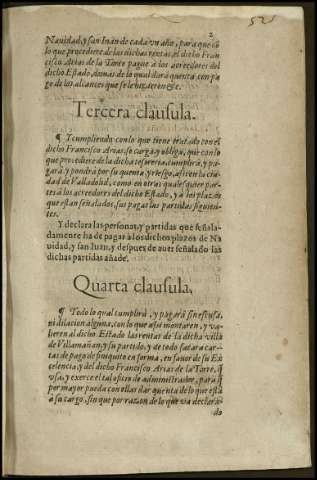 2
521
Nauidad, y san Iuan de cada vn año, para que cõ
lo que procediere de las dichas rentas, el dicho Fran
cisco Arias de la Torre pague à los acreedores del
dicho Estado, demas de lo qual dará quenta con pa
go de los alcances que se le hizieren &c.
Tercera clausula.
¶ Y cumpliendo con lo que tiene tratado con el
dicho Francisco Arias, se carga y obliga, que con lo
que procediere de la dicha tesoreria cumplirà, y pa
garà, y pondrà por su quenta y riesgo, assi en la ciu
dad de Valladolid, como en otras qualesquier par
tes à los acreedores del dicho Estado, y à los plazos
que estan señalados, sus pagas las partidas siguien
tes.
Y declara las personas, y partidas que señala
damente ha de pagar à los dichos plazos de Na
uidad, y san Iuan, y despues de auer señalado las
dichas partidas añade.
Quarta clausula.
¶ Todo lo qual cumplirà, y pagarà sin escusa,
ni dilacion alguna, con lo que assi montaren, y va
lieren al dicho Estado las rentas de la dicha villa
de Villamañan, y su partido, y de todo sacarà car
tas de pago de finiquito en forma, en fauor de su Ex
celencia, y del dicho Francisco Arias de la Torre, q̃
vsa, y exerce el tal oficio de administrador, para q̃
por mayor pueda con ellas dar quenta de lo que està
à su cargo, sin que por razon de lo que va declara-
do